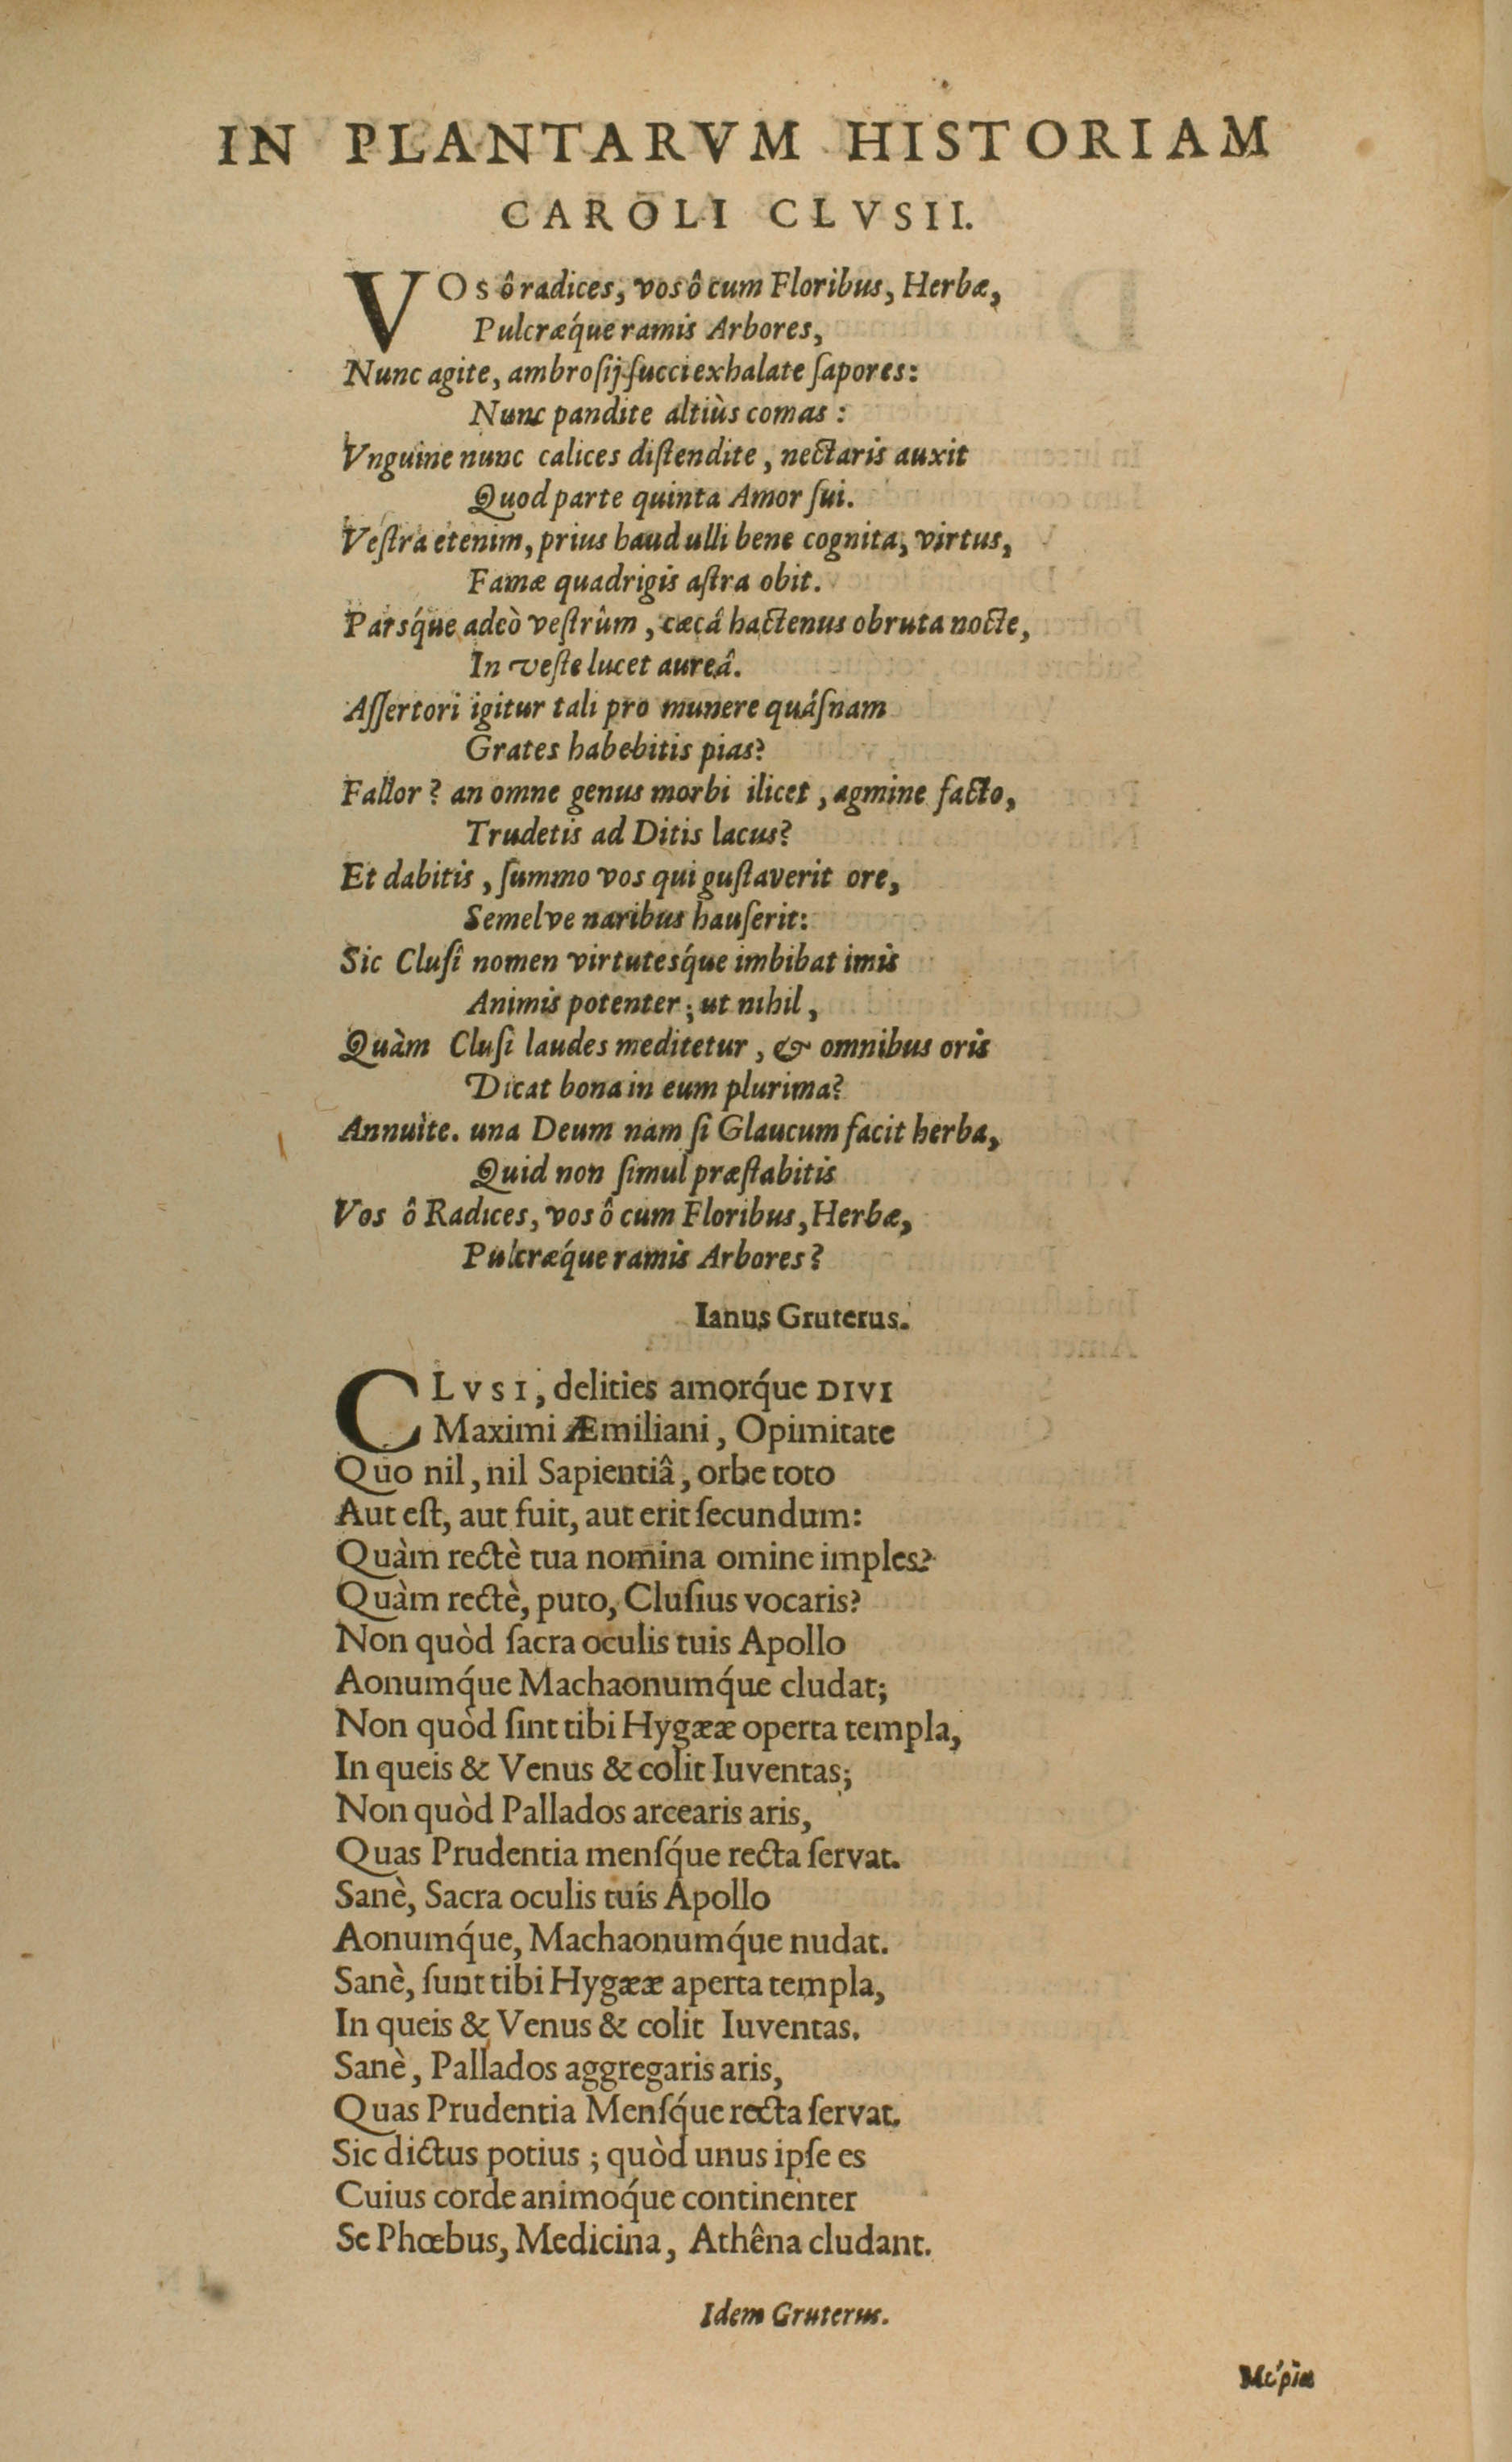 IN PLANTARVM HISTORIAM
CAROLI CLVSII.
VOs ô radices, vos ô cum Floribus, Herbæ,
Pulcræq́ue ramis Arbores,
Nunc agite, ambroſij ſucci exhalate ſapores:
Nunc pandite altiùs comas :
Vnguine nunc calices diſtendite, nectaris auxit
Quod parte quinta Amor ſui.
Veſtra etenim, prius haud ulli bene cognita, virtus,
Famæ quadrigis aſtra obit.
Parsq́ue adeò veſtrûm, cæcâ hactenus obruta nocte,
In veſte lucet aureâ.
Aſſertori igitur tali pro munere quáſnam
Grates habebitis pias?
Fallor? an omne genus morbi ilicet, agmine facto,
Trudetis ad Ditis lacus?
Et dabitis, ſummo vos qui guſtaverit ore,
Semelve naribus hauſerit:
Sic Cluſî nomen virtutesq́ue imbibat imis
Animis potenter; ut nihil,
Quàm Cluſi laudes meditetur, & omnibus oris
Dicat bona in eum plurima?
Annuite. una Deum nam ſi Glaucum facit herba,
Quid non ſimul præſtabitis
Vos ô Radices, vos ô cum Floribus, Herbæ,
Pulcræq́ue ramis Arbores?
Ianus Gruterus.
CLVSI, delities amorq́ue DIVI
Maximi Æmiliani, Opimitate
Quo nil, nil Sapientiâ, orbe toto
Aut eſt, aut fuit, aut erit ſecundum:
Quàm rectè tua nomina omine imples?
Quàm rectè, puto, Cluſius vocaris?
Non quòd ſacra oculis tuis Apollo
Aonumq́ue Machaonumq́ue cludat;
Non quòd ſint tibi Hygææ operta templa,
In queis & Venus & colit Iuventas;
Non quòd Pallados arcearis aris,
Quas Prudentia menſq́ue recta ſervat.
Sanè, Sacra oculis tuis Apollo
Aonumq́ue, Machaonumq́ue nudat.
Sanè, ſunt tibi Hygææ aperta templa,
In queis & Venus & colit Iuventas.
Sanè, Pallados aggregaris aris,
Quas Prudentia Menſq́ue recta ſervat.
Sic dictus potius ; quòd unus ipſe es
Cuius corde animoq́ue continenter
Se Phœbus, Medicina, Athêna cludant.
Idem Gruterus.